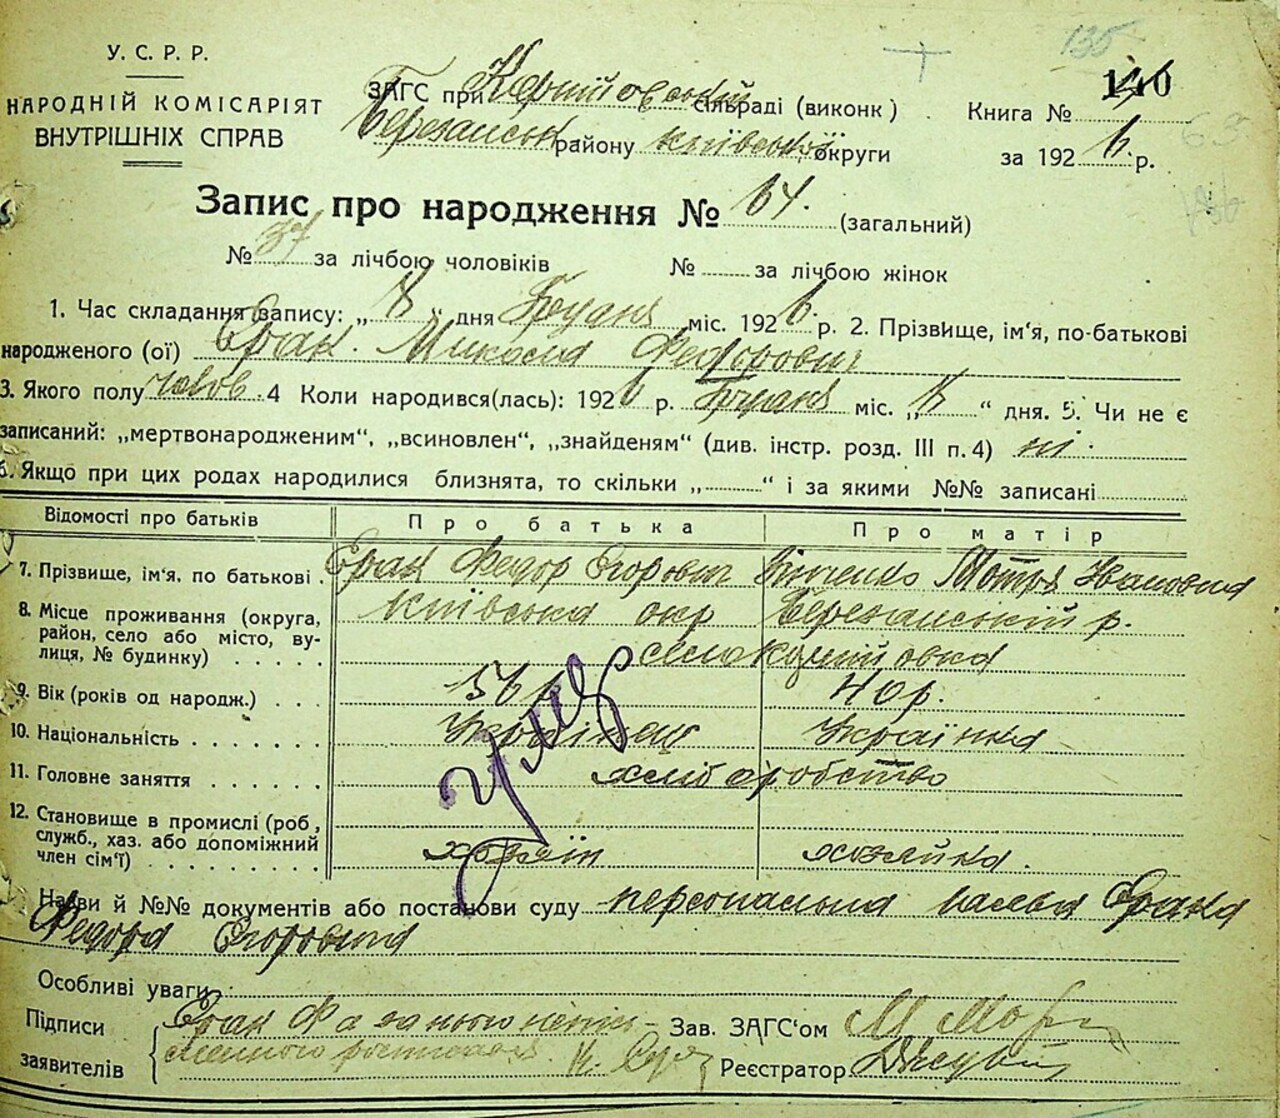 У. С. Р. Р.
НАРОДНІЙ КОМІСАРІЯТ
ВНУТРІШНІХ СПРАВ
135
140
ЗАГС при сільраді (виконк)
Березанськ району київської округи
Книга №
за 192 6 р.
Запис про народження № 64. (загальний)
№ 37 за лічбою чоловіків № за лічбою жінок
1. Час складання запису: „ 8 “ дня Грудня міс. 192 6 р. 2. Прізвище, ім'я, по-батькові
народженого (ої) Єрак. Микола Федорович
3. Якого полу чолов. 4 Коли народився(лась): 192 6 р. Грудня міс. „ 8 “ дня. 5. Чи не є
записаний: „мертвонародженим“, „всиновлен“, „знайденям“ (див. інстр. розд. III п. 4) ні.
6. Якщо при цих родах народилися близнята, то скільки „ “ і за якими №№ записані
Відомості про батьків Про батька Про матір
7. Прізвище, ім'я. по батькові. Єрак Федор Єгорович Мотря Івановна
8. Місце проживання (округа, район, село або місто, вулиця, № будинку) Київська окр Березанський р.
село
9. Вік (років од народж.) 56 р 40 р.
10. Національність Українець Українка
11. Головне заняття хліборобство
12. Становище в промислі (роб, служб., хаз. або допоміжний член сім'ї) хозяїн хозяйка.
умер
Назви й №№ документів або постанови суду персональна Єрака
Федора Єгоровича
Особливі уваги:
Підписи заявителів Єрак Ф а за нього
Зав. ЗАГС'ом
Реєстратор